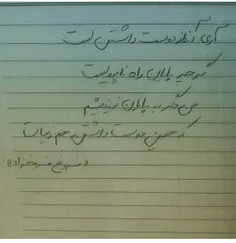 آری آغاز دوست داشتن است
گرچه پایان راه ناپیداست
من دگر به پایان نیندیشم
که همین دوست داشتن هم زیباست
«فروغ فرخزاد»